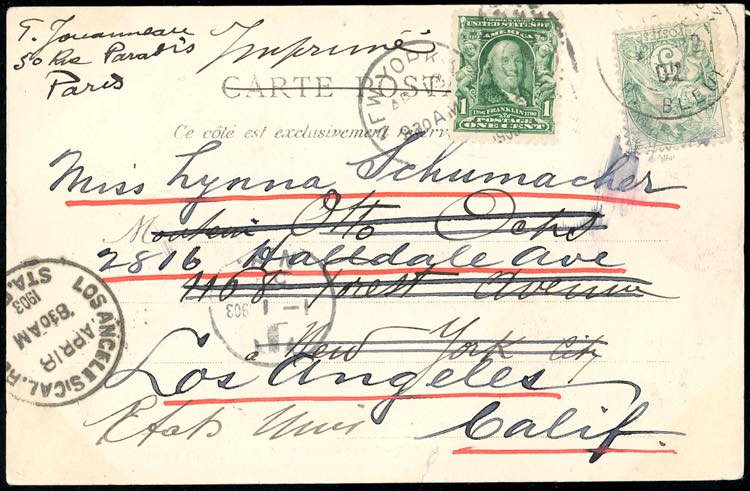 T. Jouanneau
50 Rue Paradis
Paris
Imprimé
CARTE POSTA
Ce côté est exclusivement réserv
SERIES 1902
UNITED STATES OF AMERICA
1 1
1706 FRANKLIN 1790
POSTAGE
ONE CENT
NEW YORK
30 AM
1903
5
BLEU
Miss Lynna Schumacher
M Otto Ochs
2816 Halldale Ave
1168 Forest Avenue
1903
LOS ANGELES, CAL. R.
STA.
APR 18
830 AM
1903
à New York City
Los Angeles
Etats Unis
Calif.